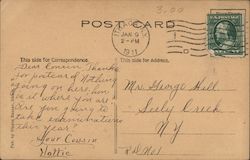 3.00
POST CARD
JAN 9
2-PM
1911
This side for Correspondence.
This side for Address.
Dear Cousin Thanks
for postcard Nothing
going on here, how
is it where you are?
Are you going to
take examinations
this year?
Your Cousin
Hattie
Mr George Hill
Seely Creek
N.Y.
R.D. No 1